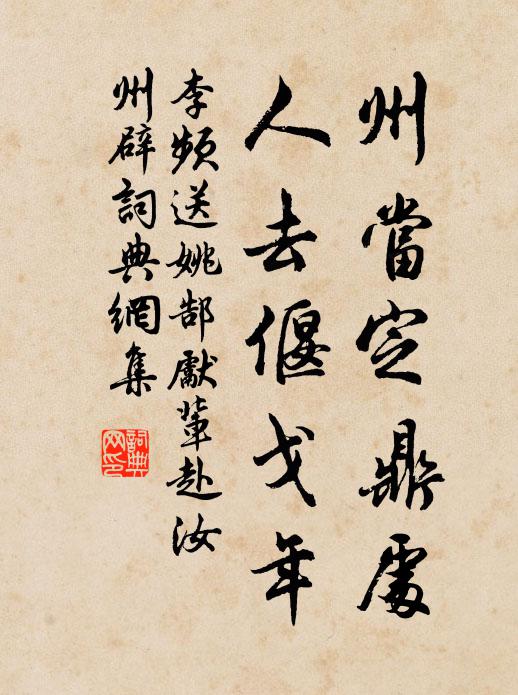 州當定鼎處
人去偃戈年
李頻送姚郜獻輩赴汝
州辟詞典網集
詞典
网印